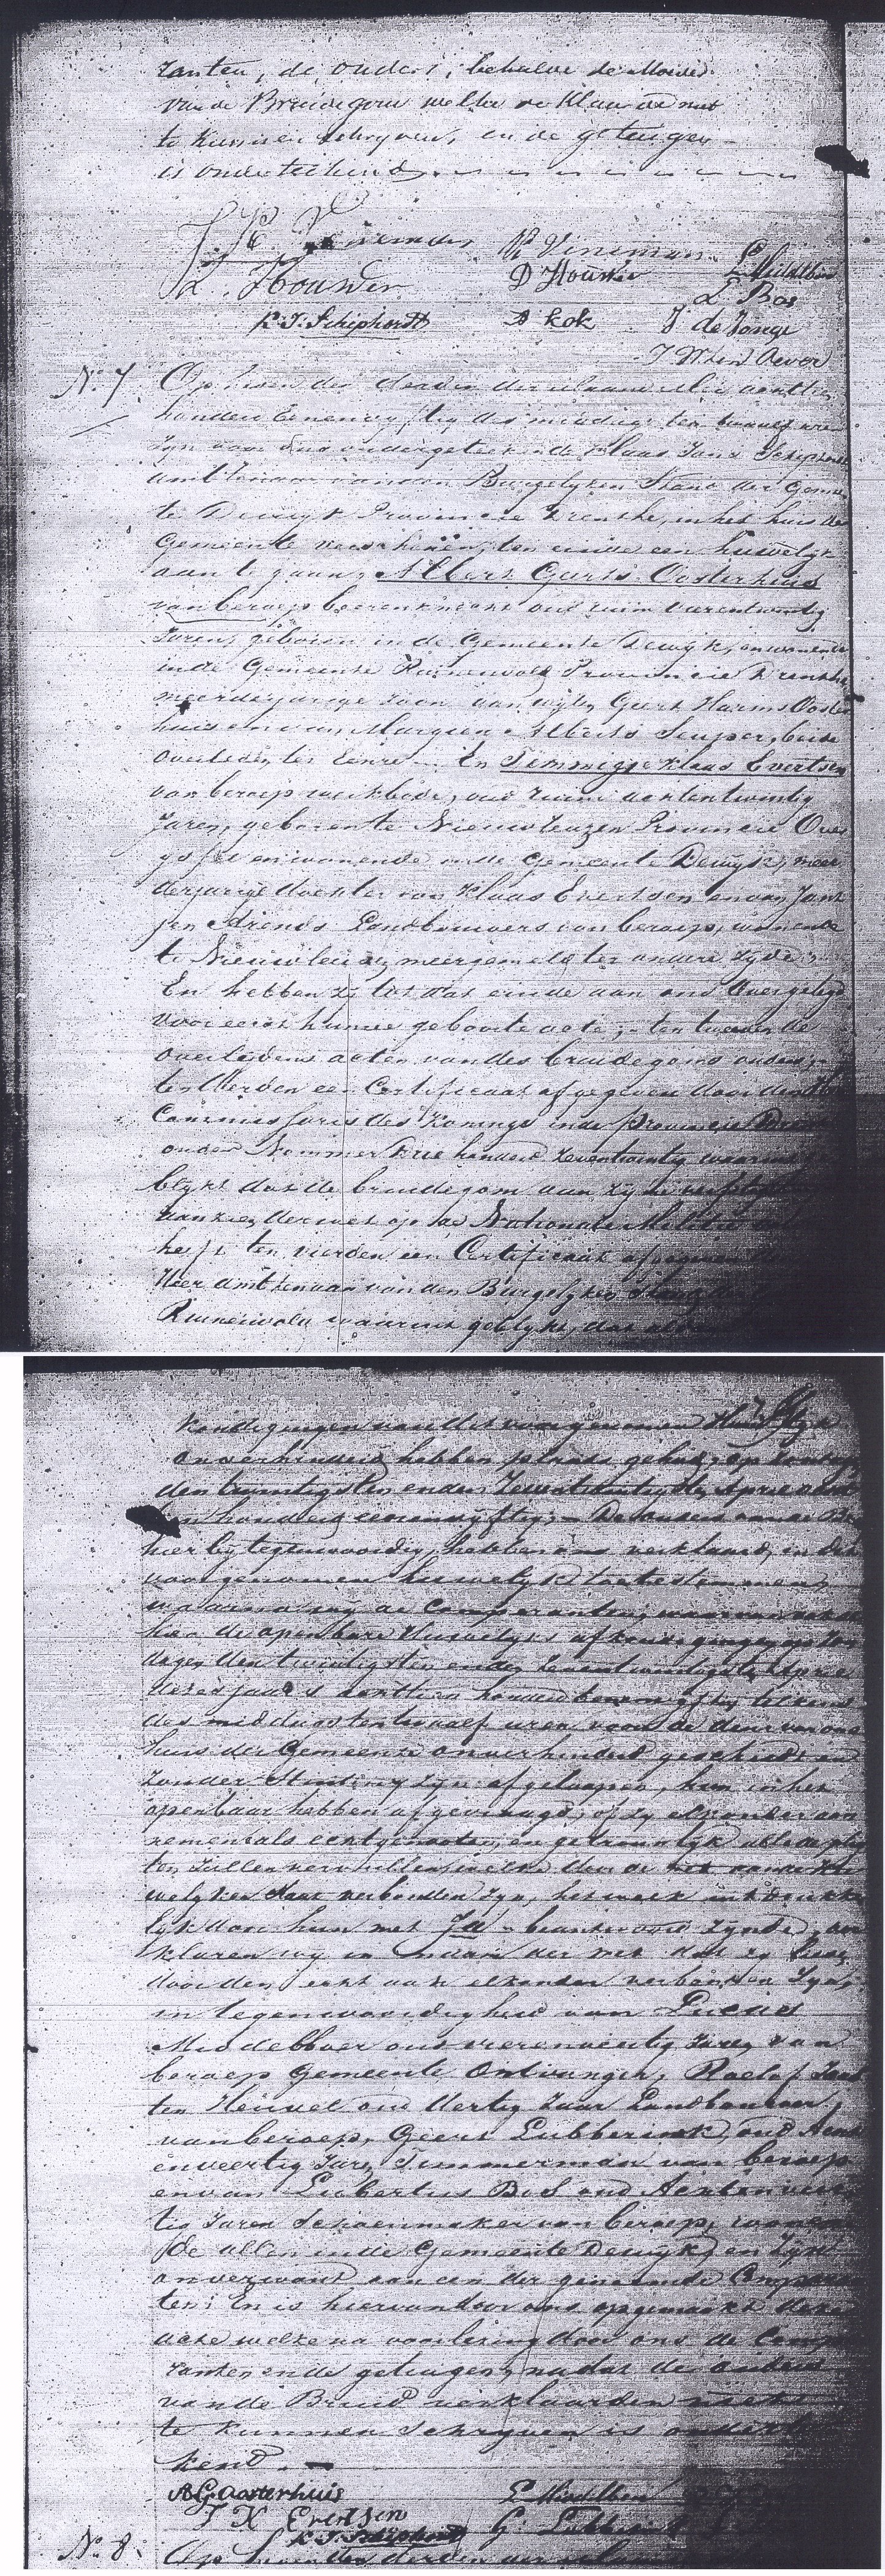 ranten, de ouders, behalve de Moeder
van de Bruidegom welke verklaarde niet
te kunnen schryven, en de getuigen
is onderteekend
L. Houwer D Houwer
L Bos
K.J. Schiphorst A Kok J de Jonge
J W ten Oever
No 7 Op heden den derden der maand Mei achttien
honderd Eenenvyftig des middags ten twaalf ure
zyn voor ons ondergeteekende Klaas Jans Schiphorst
ambtenaar van den Burgelyken Stand der Gemeen
te Dewyk Provincie Drenthe, in het huis der
Gemeente verschenen, ten einde een huwelyk
aan te gaan; Albert Geerts Oosterhuis
van beroep boerenknecht oud ruim vierentwintig
Jaren, geboren in de Gemeente Dewyk, en wonende
in de Gemeente Ruinerwold Provincie Drenthe
meerderjarige zoon van wylen Geert Harms Ooster
huis en van Margien Alberts beide
overleden ter Eenre En Jemmigje Klaas Evertsen
van beroep werkbode, oud ruim achtentwintig
Jaren, geboren te Nieuwleuzen Provincie Over
yssel en wonende in de Gemeente Dewyk, meer
derjarige dochter van Klaas Evertsen en van Jant
jen Arends Landbouwers van beroep, wonende
te Nieuwleuzen meergemeld ter andere zyde
En hebben zy tot dat einde aan ons Overgelegd
voor eerst hunne geboorte acte; ten tweede de
overlydens acten van des bruidegoms ouders;
ten derden een Certificaat afgegeven door den Heer
Commissaris des Konings in de Provincie Drenthe
onder Nommer Drie honderd zeventwintig waaruit
blykt dat de bruidegom aan zyne verpligting
van zien der wet op de Nationale Militie
heeft ten vierden een Certificaat afgegeven
Heer ambtenaar van den Burgelyken Stand der
Ruinerwold waaruit geblykt, dat
kondigingen van dit voorgenomen Huwelyk
onverhinderd hebben plaats gehad, op Zondag
den twintigsten en den Zevenentwintigsten April acht
tien honderd eenenvyftig; De ouders van de Bruid
hier by tegenwoordig, hebben ons verklaard, in dit
voorgenomen huwelyk toetestemmen,
waarna wy de Comparanten, waarvan
de openbare Huwelyks afkondigingen op Zon
dagen den twintigsten en den Zevenentwintigsten April
dezes jaars achttien honderd eenenvyftig telkens
des middags ten twaalf uren voor de deur van ons
huis der Gemeente onverhinderd geschied en
zonder Stuiting zyn afgeloopen, hun in het
openbaar hebben afgevraagd, of zy elkander aan
nemen als echtgenooten, en getrouwelyk alle de plig
ten zullen vervullen welke door de wet aan den Hu
welyken staat verbonden zyn, het welk uitdrukke
lyk door hun met Ja beantwoord zynde, ver
klaren wy in naam der wet dat zy
door den echt aan elkander verbonden zyn,
in tegenwoordigheid van Lucas
Middelboer oud vierenveertig Jaren van
beroep Gemeente Ontvanger, Roelof
ten Heuvel oud dertig Jaar Landbouwer
van beroep, Geert Lubberink, oud Acht
enveertig Jaren Timmerman van beroep
en van Lubertus Bos oud Achtenveer
tig Jaren Schoenmaker van beroep, wonen
de allen in de Gemeente Dewyk, en zyn
onverwant aan een der genoemde Compran
ten; En is hiervan door ons opgemaakt deze
acte welke na voorlezing door ons de Comp
ranten en de getuigen, nadat de ouders
van de Bruid verklaarden niet
te kunnen schryven is ondertee
kend
AG Oosterhuis L Middelboer
J K Evertsen
K.J. Schiphorst G. Lubberink
No 8. Op heden den derden der maand